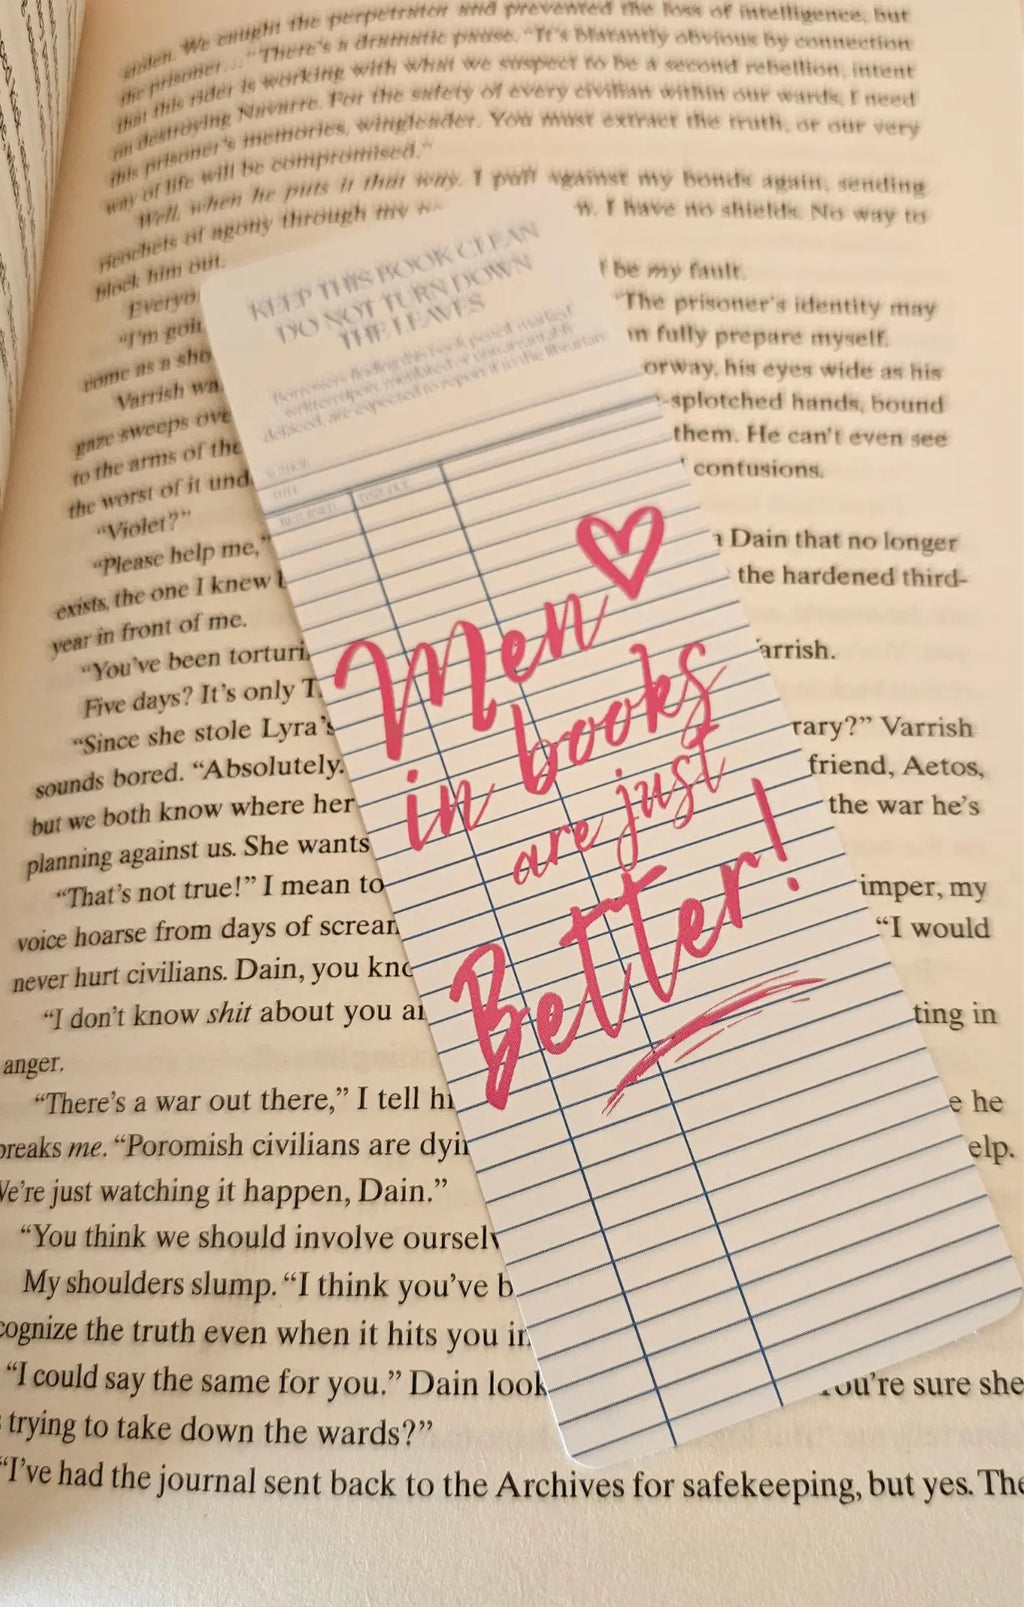 stolen. We caught the perpetrator and prevented the loss of intelligence, but
the prisoner… “There’s a dramatic pause. “It’s blatantly obvious by connection
that this rider is working with what we suspect to be a second rebellion, intent
on destroying Navarre. For the safety of every civilian within our wards, I need
this prisoner’s memories, wingleader. You must extract the truth, or our very
way of life will be compromised.”
Well, when he puts it that way. I pull against my bonds again, sending
ricochets of agony through my w. I have no shields. No way to
block him out.
Everyo be my fault.
“I’m goin “The prisoner’s identity may
come as a sho fully prepare myself.
Varrish wa orway, his eyes wide as his
gaze sweeps ove -splotched hands, bound
to the arms of the them. He can’t even see
the worst of it und contusions.
“Violet?”
“Please help me,” Dain that no longer
exists, the one I knew the hardened third-
year in front of me.
“You’ve been torturi arrish.
Five days? It’s only T
“Since she stole Lyra’s rary?” Varrish
sounds bored. “Absolutely. friend, Aetos,
but we both know where her the war he’s
planning against us. She wants
“That’s not true!” I mean to imper, my
voice hoarse from days of scream “I would
never hurt civilians. Dain, you kno
“I don’t know shit about you a ting in
anger.
“There’s a war out there,” I tell hi e he
breaks me. “Poromish civilians are dyin elp.
We’re just watching it happen, Dain.”
“You think we should involve ourselv
My shoulders slump. “I think you’ve b
cognize the truth even when it hits you in
“I could say the same for you.” Dain look You’re sure she
trying to take down the wards?”
“I’ve had the journal sent back to the Archives for safekeeping, but yes. The
KEEP THIS BOOK CLEAN
DO NOT TURN DOWN
THE LEAVES
Borrowers finding this book pencil marked
written upon, mutilated or unwarrantably
defaced, are expected to report it to the librarian.
AUTHOR
TITLE
RETURNED DATE DUE
Men
in books
are just
Better!